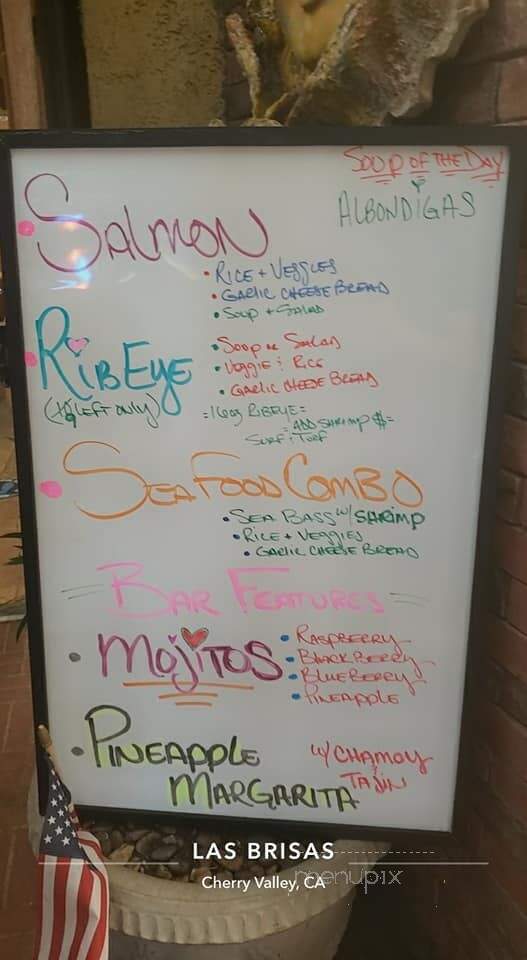 SOUP OF THE DAY
ALBONDIGAS
SALMON
• RICE + VEGGIES
• GARLIC CHEESE BREAD
• SOUP + SALAD
RIBEYE
LEFT ONLY)
• SOUP or SALAD
• VEGGIE & RICE
• GARLIC CHEESE BREAD
=16oz RIBEYE=
=ADD SHRIMP $=
SURF & TURF
SEAFOOD COMBO
• SEA BASS w/ SHRIMP
• RICE + VEGGIES
• GARLIC CHEESE BREAD
BAR FEATURES
• MOJITOS
• RASPBERRY
• BLACKBERRY
• BLUEBERRY
• PINEAPPLE
• PINEAPPLE
MARGARITA
w/ CHAMOY
TAJIN
LAS BRISAS
Cherry Valley, CA
menupix